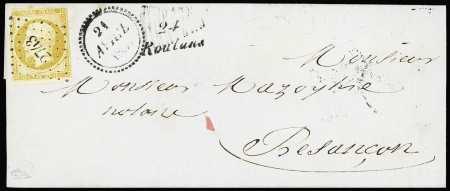 2743
21
AVRIL
24
Roulans
Monsieur
Monsieur
notaire
Besançon